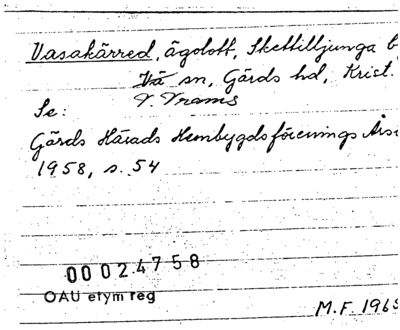 Vasakärred, ägolott, Skettilljunga b
Vä sn, Gärds hd, Krist.
V. Vrams
Se:
Gärds Härads Hembygdsförenings Års
1958, s. 54
00024758
OAU etym reg
M.F. 1965